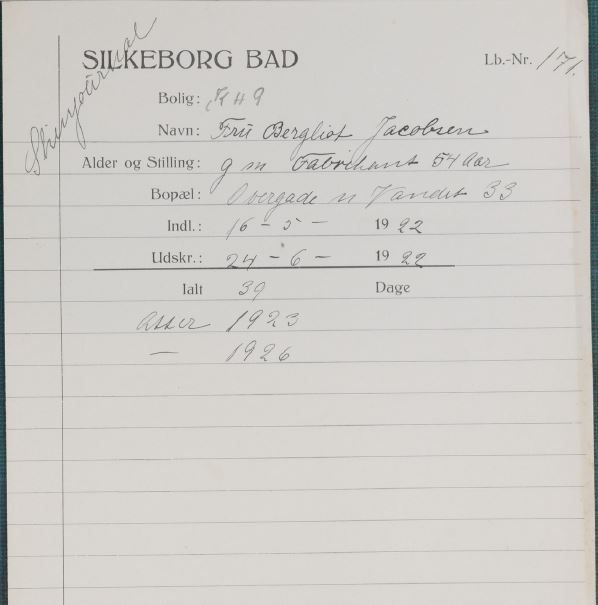 SILKEBORG BAD
Lb.-Nr. 171.
Bolig: K 49
Navn: Fru Bergliot Jacobsen
Alder og Stilling: g m Fabrikant 54 Aar
Bopæl: Overgade n Vandet 33
Indl.: 16 - 5 - 1922
Udskr.: 24 - 6 - 1922
Ialt 39 Dage
1923
— 1926